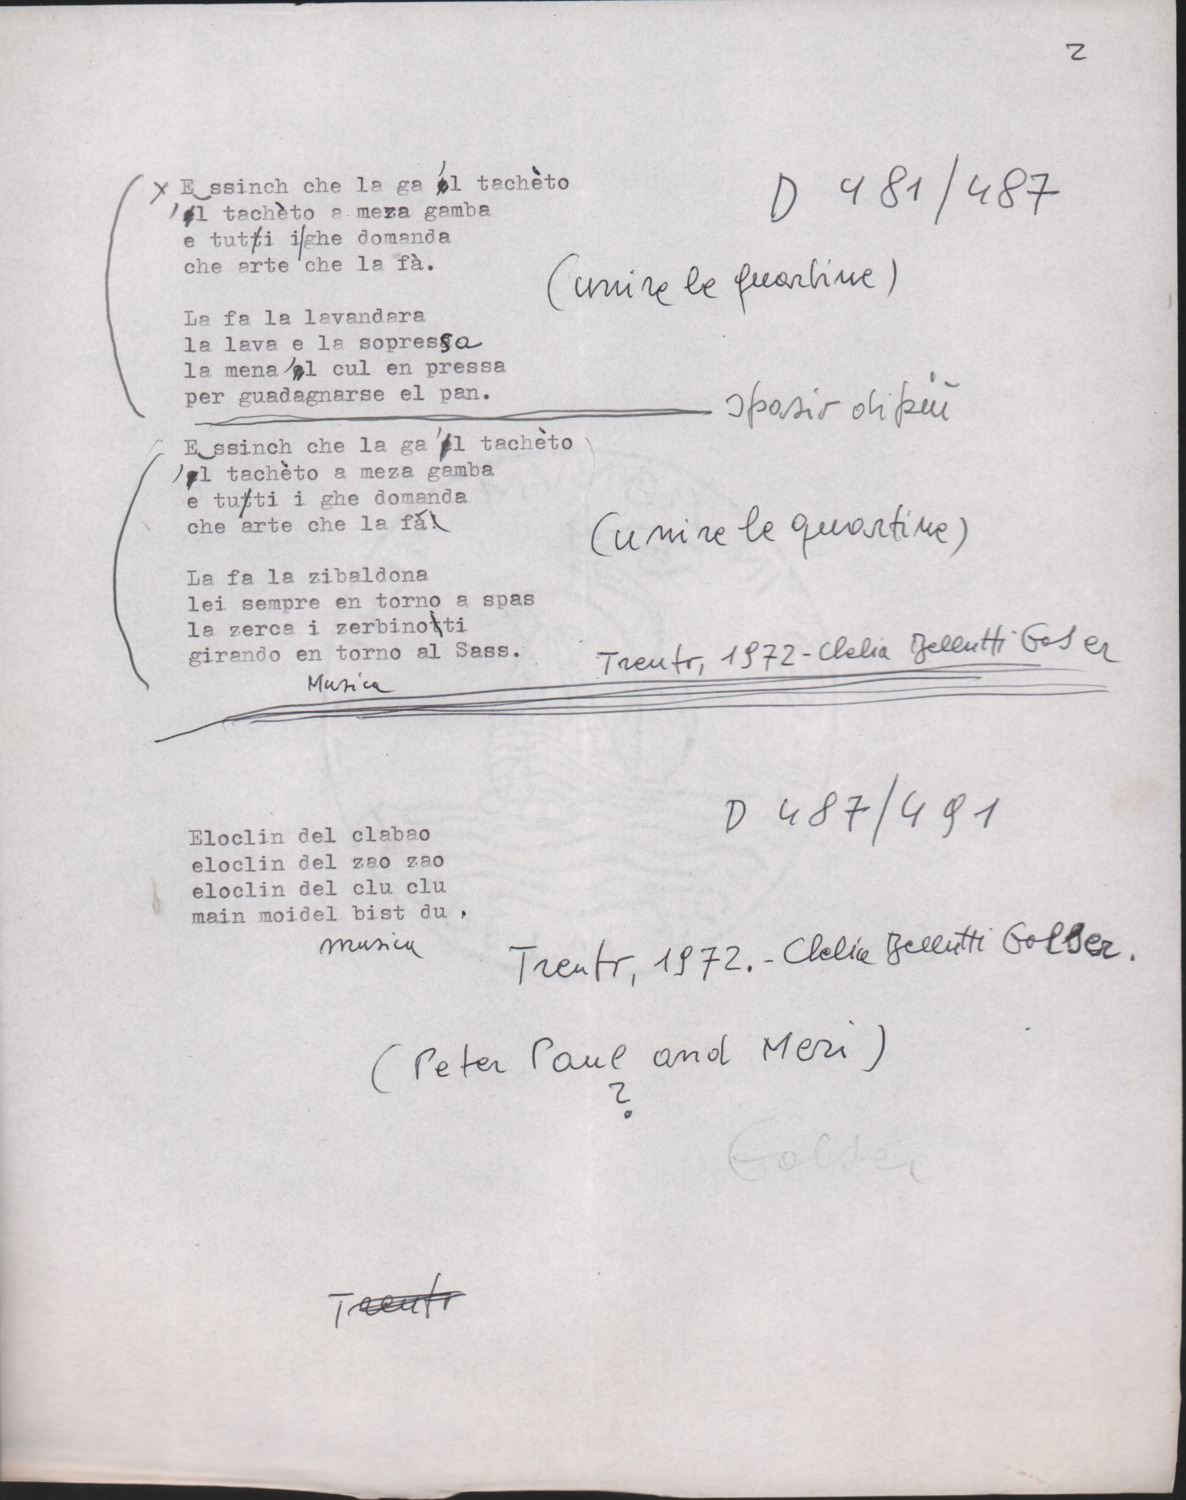 2
x E ssinch che la ga 'l tachèto
'l tachèto a meza gamba
e tuti i ghe domanda
che arte che la fà.
D 481/487
(unire le quartine)
La fa la lavandara
la lava e la sopressa
la mena 'l cul en pressa
per guadagnarse el pan.
spazio di più
E ssinch che la ga 'l tachèto
'l tachèto a meza gamba
e tuti i ghe domanda
che arte che la fà
(unire le quartine)
La fa la zibaldona
lei sempre en torno a spas
la zerca i zerbinoti
girando en torno al Sass.
Trento, 1972 - Clelia Bellutti Golser
Musica
D 487/491
Eloclin del clabao
eloclin del zao zao
eloclin del clu clu
main moidel bist du .
musica
Trento, 1972. - Clelia Bellutti Golser.
(Peter Paul and Meri)
?
Golser
Trento